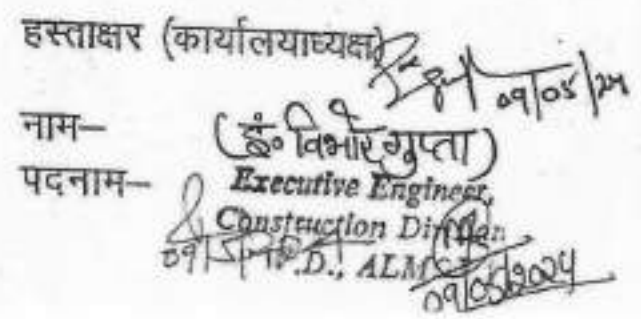 हस्ताक्षर (कार्यालयाध्यक्ष)
09/05/24
नाम—
(इं० विभोर गुप्ता)
पदनाम—
Executive Engineer,
Construction Division
.D., ALM
09/05/2024